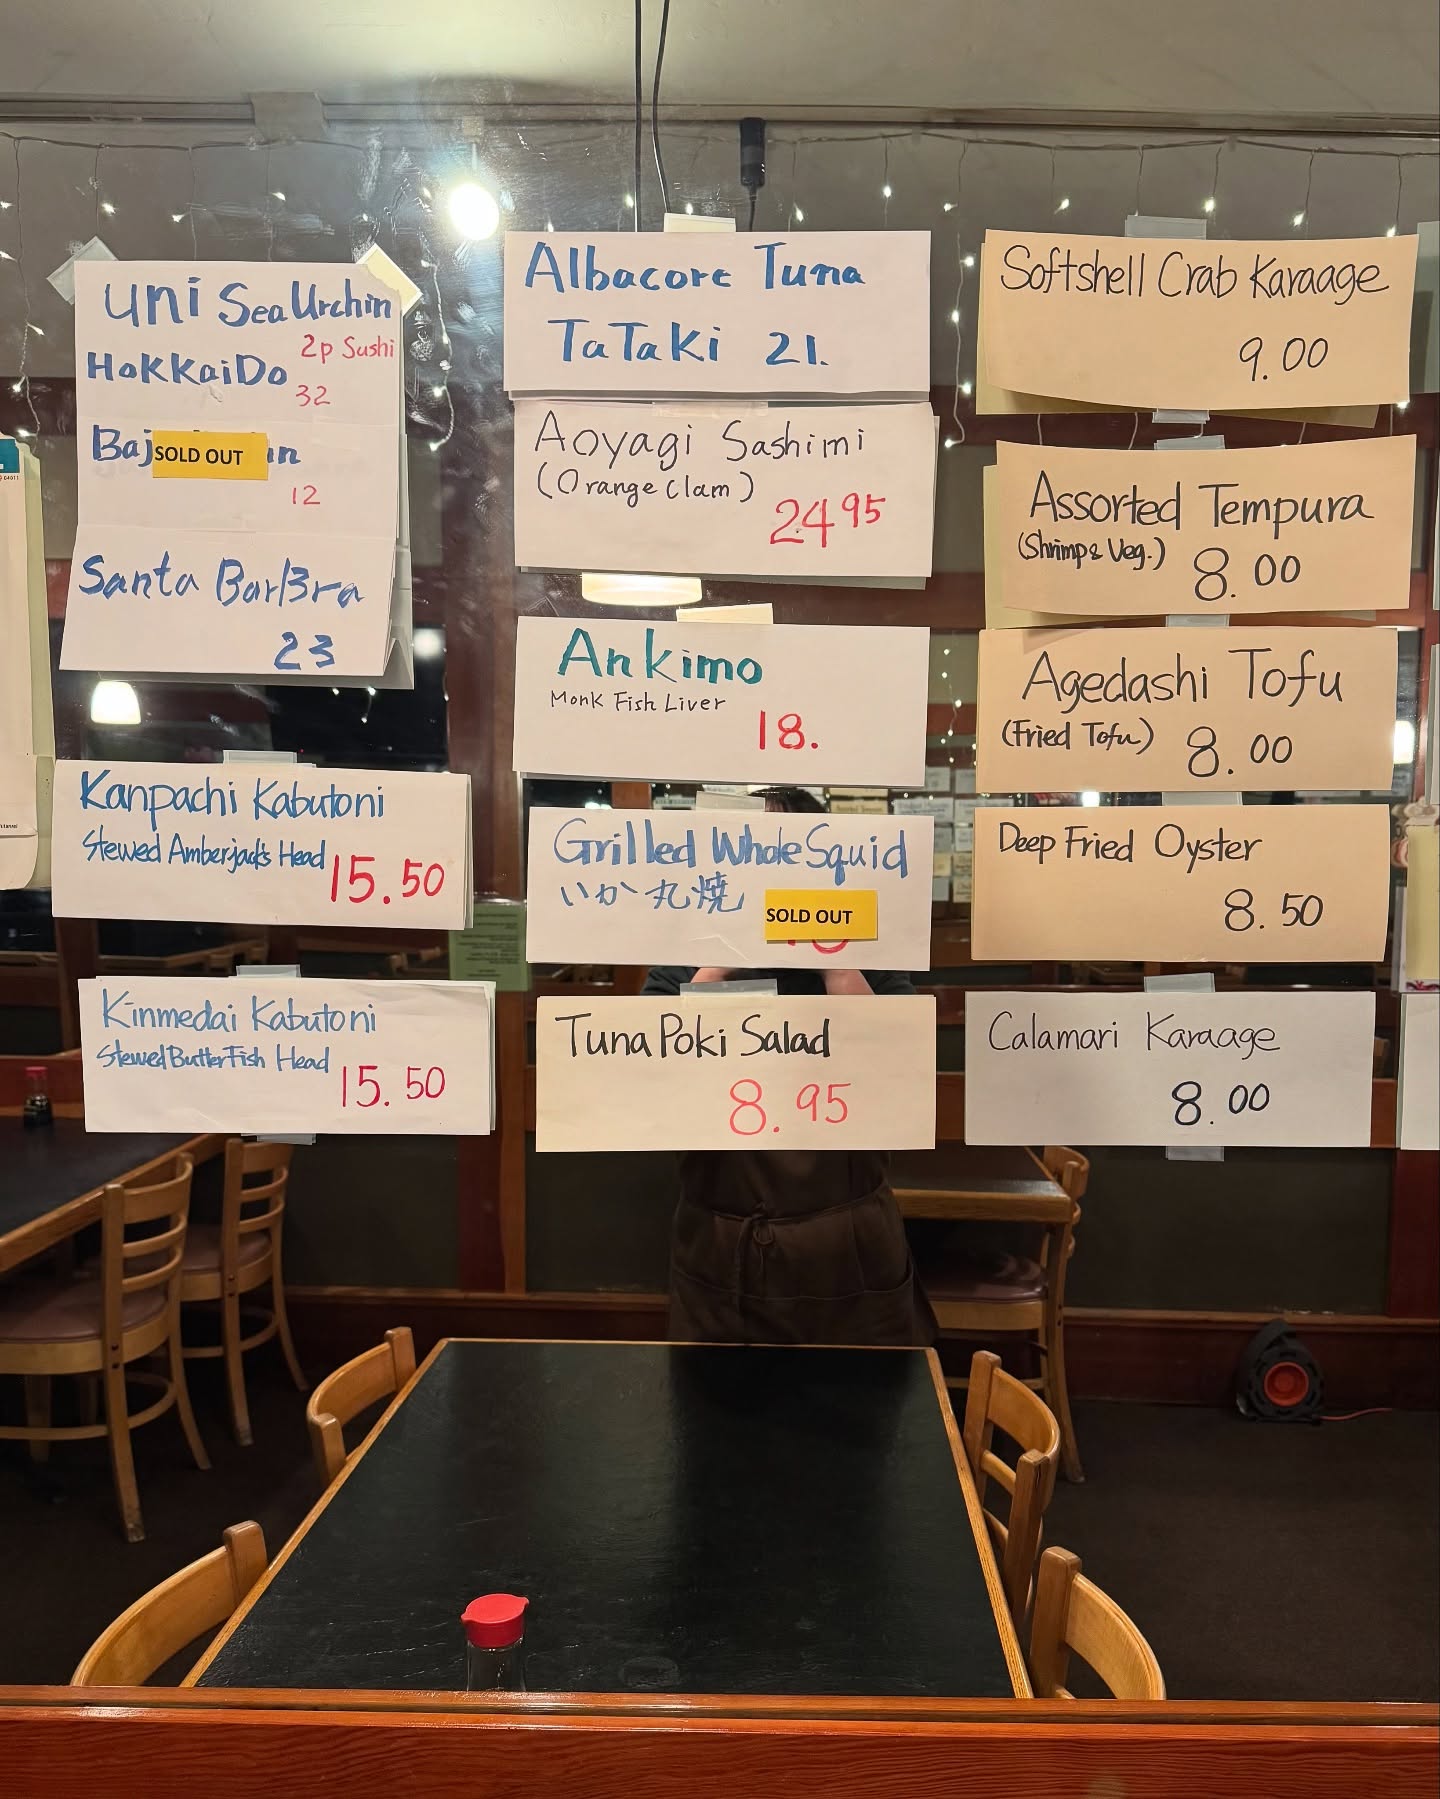 uni Sea Urchin
2p Sushi
HoKKaiDo
32
SOLD OUT
12
Santa BarBra
23
Kanpachi Kabutoni
Stewed Amberjack's Head
15.50
Kinmedai Kabutoni
Stewed Butter Fish Head
15.50
Albacore Tuna
TaTaKi 21.
Aoyagi Sashimi
(Orange Clam)
24 95
Ankimo
Monk Fish Liver
18.
Grilled Whole Squid
いか丸焼
SOLD OUT
Tuna Poki Salad
8.95
Softshell Crab Karaage
9.00
Assorted Tempura
(Shrimp & Veg.) 8.00
Agedashi Tofu
(Fried Tofu) 8.00
Deep Fried Oyster
8.50
Calamari Karaage
8.00